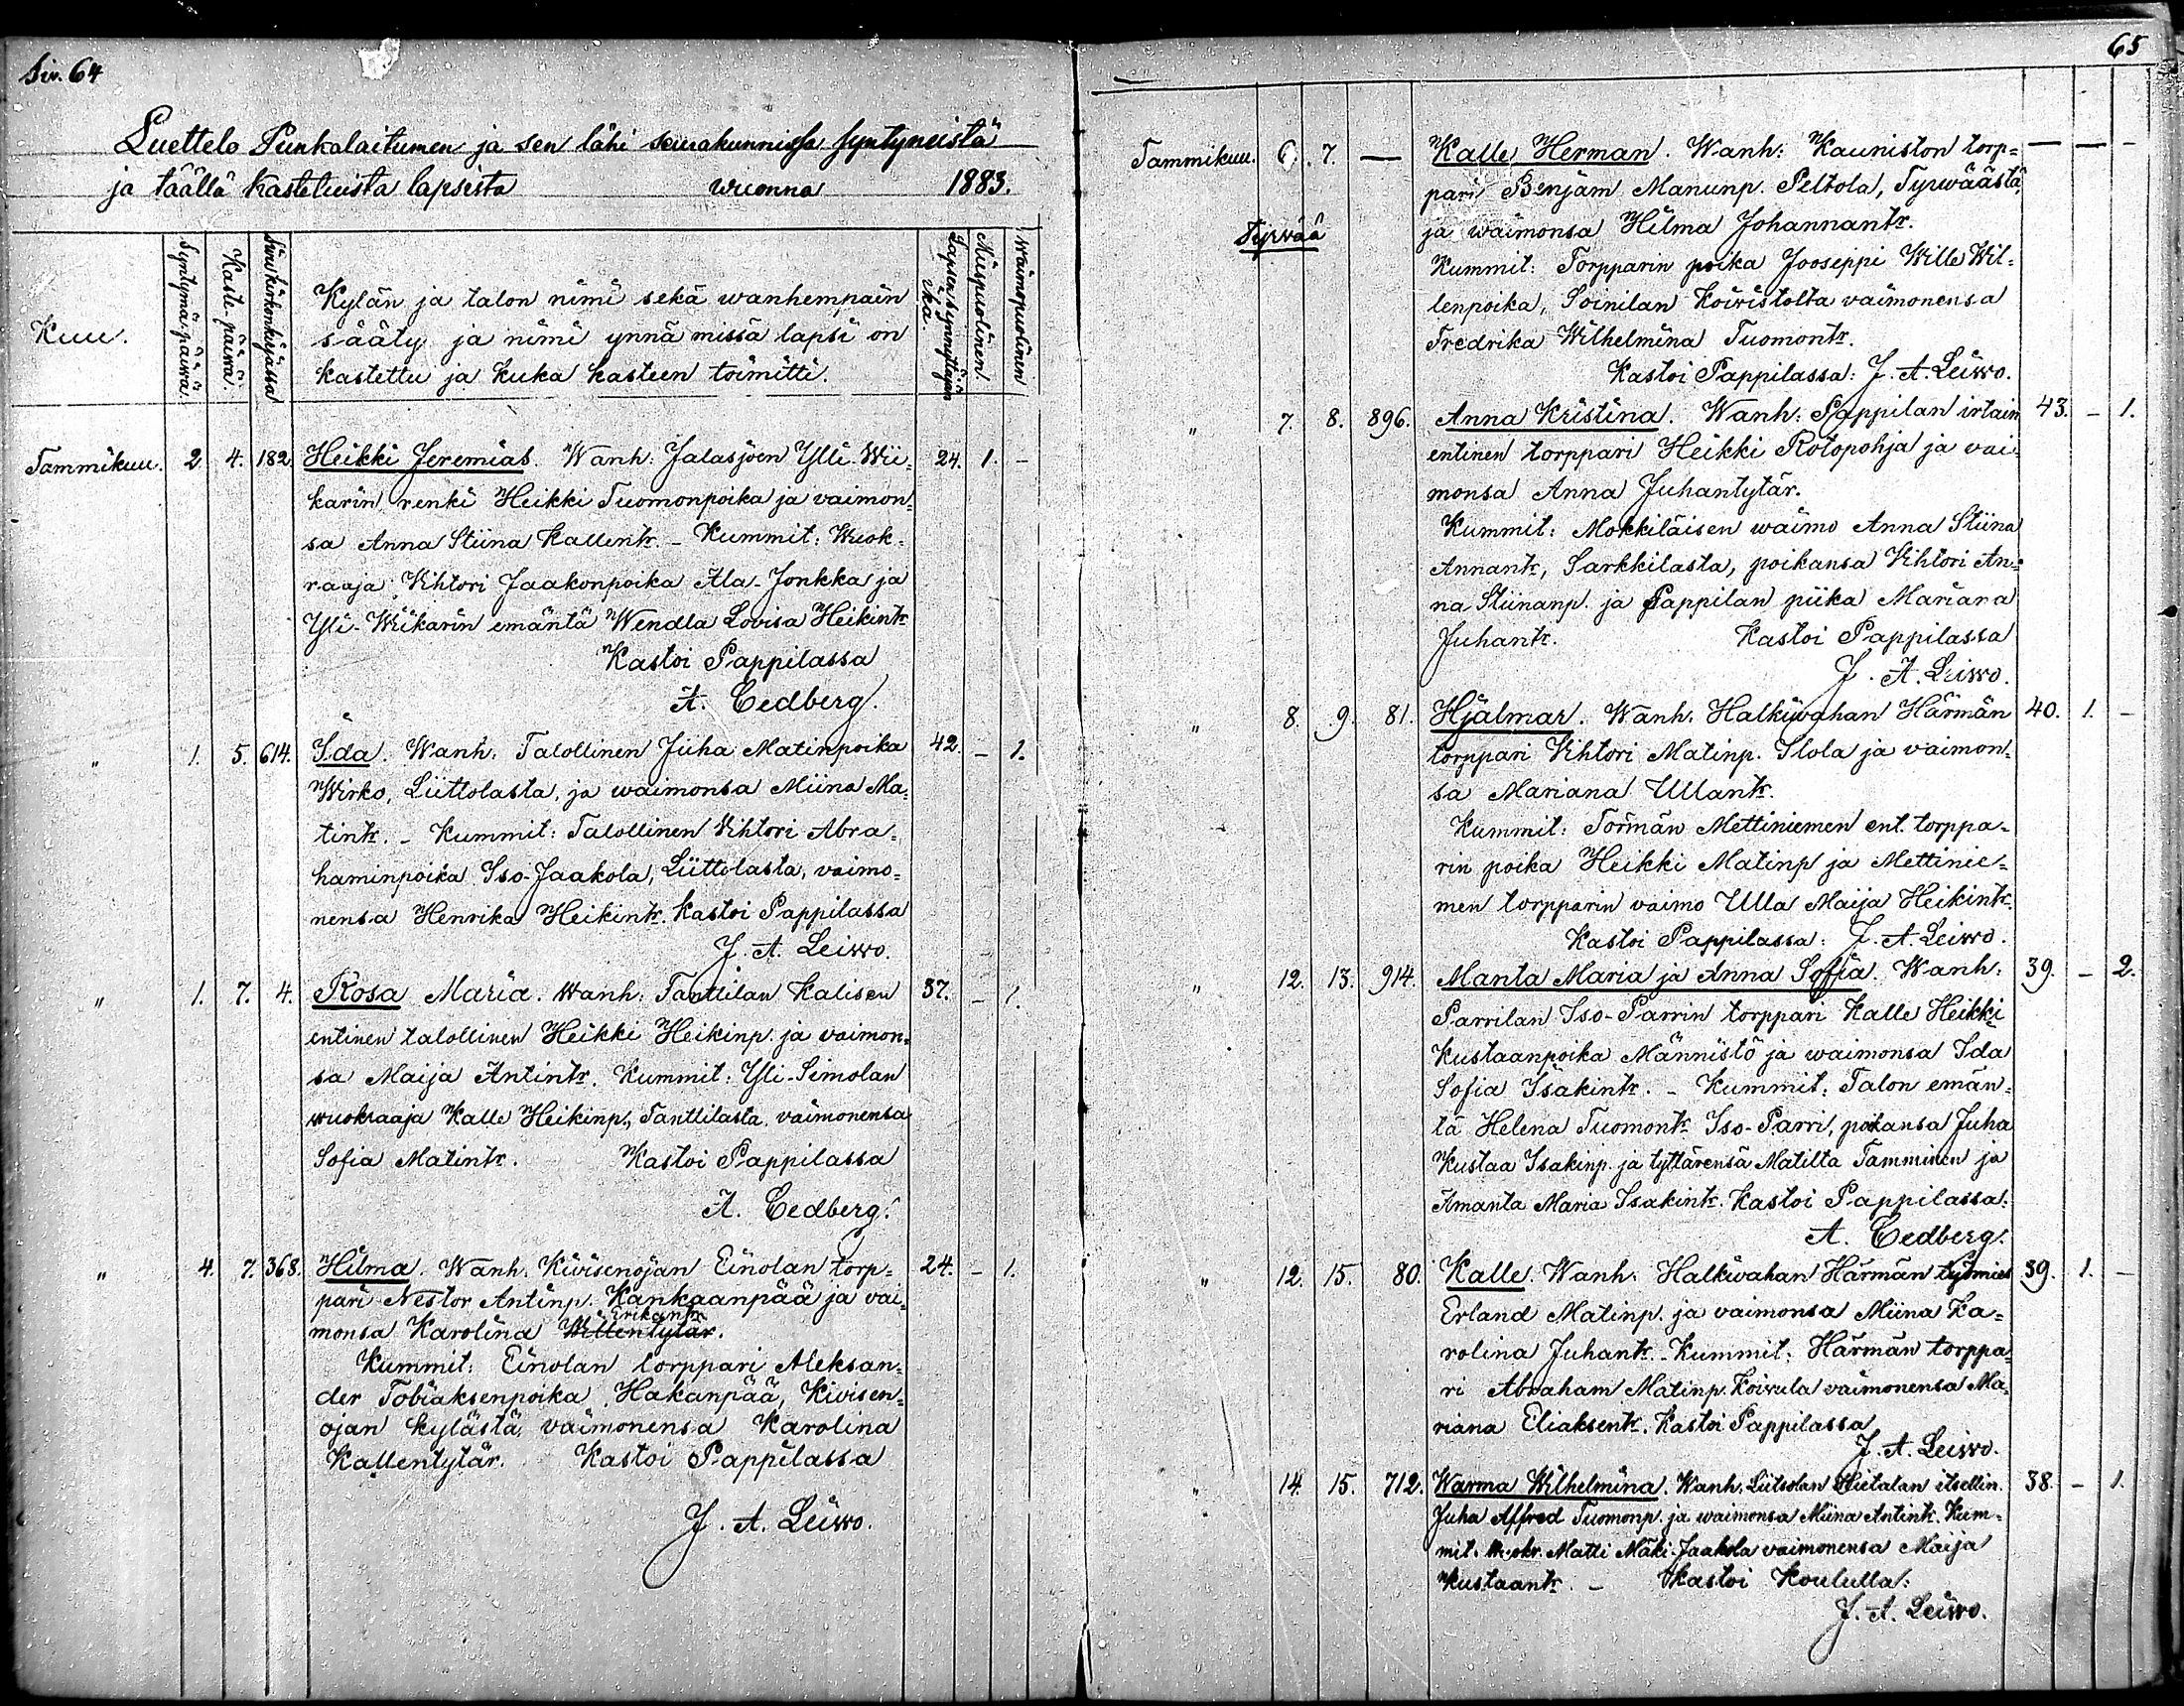 Siv. 64
Luettelo Punkalaitumen ja sen lähi seurakunnissa syntyneistä
ja täällä kastetuista lapsista wuonna 1883.
Kuu.
Syntymä-päiwä.
Kaste-päiwä.
Siwu kirkonkirjassa
Kylän ja talon nimi sekä wanhempain
sääty ja nimi ynnä missä lapsi on
kastettu ja kuka kasteen toimitti.
Lapsensynnyttäjän
ikä.
Miespuolinen.
Waimopuolinen
Tammikuu. 2. 4. 182. Heikki Jeremias. Wanh: Jalasjoen Ylli-Wii= 24. 1. –
karin renki Heikki Tuomonpoika ja vaimon=
sa Anna Stiina Kallentr. – Kummit: Wuok=
raaja Vihtori Jaakonpoika Ala-Jonkka ja
Yli-Wiikarin emäntä Wendla Lovisa Heikintr
Kastoi Pappilassa
A. Cedberg.
" 1. 5. 614. Ida. Wanh: Talollinen Juha Matinpoika 42. – 1.
Wirko, Liittolasta, ja waimonsa Miina Ma=
tintr. – Kummit: Talollinen Vihtori Abra=
haminpoika Iso-Jaakola, Liittolasta, vaimo=
nensa Henrika Heikintr. Kastoi Pappilassa
J. A. Leiwo.
" 1. 7. 4. Rosa Maria. Wanh: Tanttilan Kalisen 37. – 1.
entinen talollinen Heikki Heikinp. ja vaimon=
sa Maija Antintr. Kummit: Yli-Simolan
wuokraaja Kalle Heikinp., Tanttilasta vaimonensa
Sofia Matintr. Kastoi Pappilassa
A. Cedberg.
" 4. 7. 368. Hilma. Wanh. Kivisenojan Einolan torp= 24. – 1.
pari Nestor Antinp. Kankaanpää ja vai=
Erikantr
monsa Karolina Willentytär.
Kummit: Einolan torppari Aleksan=
der Tobiaksenpoika Hakanpää, Kivisen=
ojan kylästä, vaimonensa Karolina
Kallentytär. Kastoi Pappilassa
J. A. Leiwo.
65
Tammikuu. 6. 7. — Kalle Herman. Wanh: Kauniston torp= — — –
pari Benjam Manunp. Peltola, Tyrwäästä,
Tyrwää
ja waimonsa Hilma Johannantr.
Kummit: Torpparin poika Jooseppi Wille Wil=
lenpoika, Soinilan Koivistolta vaimonensa
Fredrika Wilhelmina Tuomontr.
Kastoi Pappilassa: J. A. Leiwo.
" 7. 8. 896. Anna Kristina. Wanh: Pappilan irtain 43. – 1.
entinen torppari Heikki Rotopohja ja vai=
monsa Anna Juhantytär.
Kummit: Mokkiläisen waimo Anna Stiina
Annantr, Sarkkilasta, poikansa Vihtori An=
na Stiinanp. ja Pappilan piika Mariana
Juhantr. Kastoi Pappilassa
J. A. Leiwo.
" 8. 9. 81. Hjalmar. Wanh. Halkiwahan Härmän 40. 1. –
torppari Vihtori Matinp. Ilola ja vaimon=
sa Mariana Ullantr.
Kummit: Törmän Mettiniemen ent. torppa=
rin poika Heikki Matinp ja Mettinie=
men torpparin vaimo Ulla Maija Heikintr.
Kastoi Pappilassa: J. A. Leiwo.
" 12. 13. 914. Manta Maria ja Anna Sofia. Wanh: 39. – 2.
Parrilan Iso-Parrin torppari Kalle Heikki
Kustaanpoika Männistö ja waimonsa Ida
Sofia Isakintr. – Kummit: Talon emän=
tä Helena Tuomontr Iso-Parri, poikansa Juha
Kustaa Isakinp. ja tyttärensä Matilta Tamminen ja
Amanta Maria Isakintr. Kastoi Pappilassa.
A. Cedberg.
" 12. 15. 80. Kalle. Wanh: Halkivahan Härmän työmies 39. 1. –
Erland Matinp. ja vaimonsa Miina Ka=
rolina Juhantr. – Kummit: Härmän torppa=
ri Abraham Matinp. Koivula vaimonensa Ma=
riana Eliaksentr. Kastoi Pappilassa
J. A. Leiwo.
" 14. 15. 712. Warma Wilhelmina. Wanh. Liitsolan Hietalan itsellin. 38. – 1.
Juha Affred Tuomonp. ja waimonsa Miina Antintr. Kum=
mit. Matti Mäki-Jaakola vaimonensa Maija
Kustaantr. – Kastoi Koululla:
J. A. Leiwo.